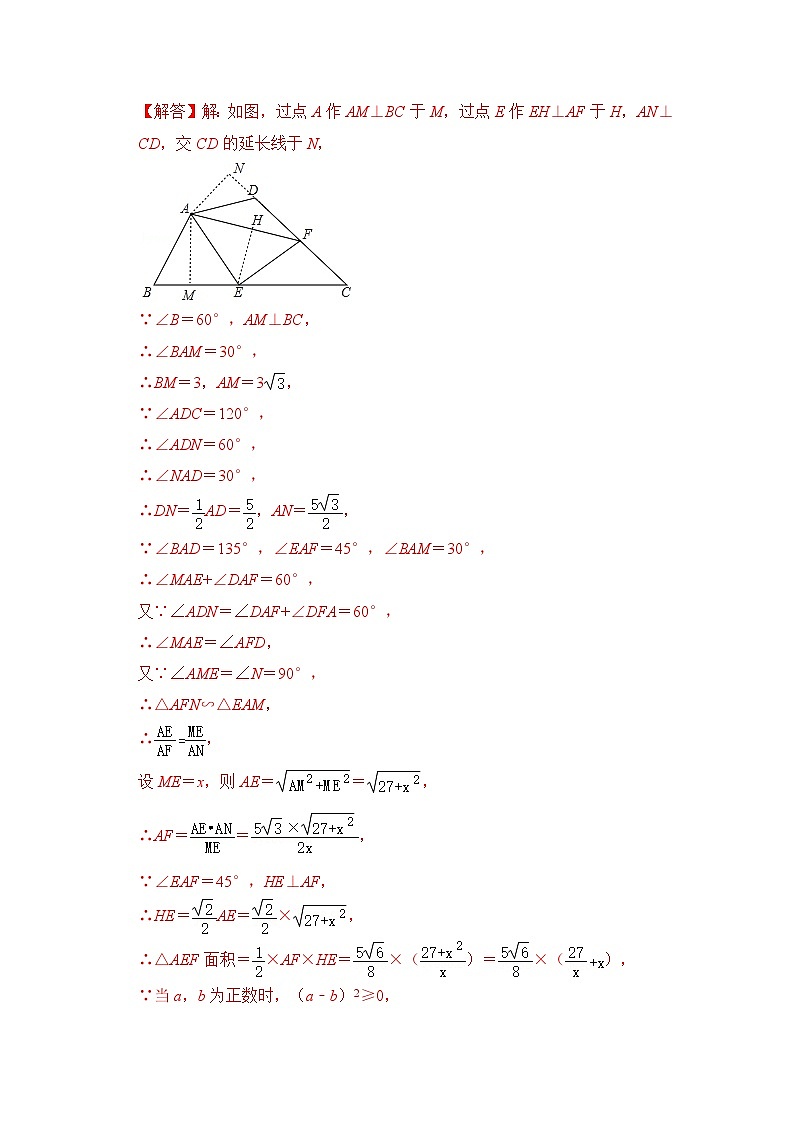 【解答】解：如图，过点A作AM⊥BC于M，过点E作EH⊥AF于H，AN⊥
CD，交CD的延长线于N，
N
D
A
H
F
B
M
E
C
∵∠B＝60°，AM⊥BC，
∴∠BAM＝30°，
∴BM＝3，AM＝3√3，
∵∠ADC＝120°，
∴∠ADN＝60°，
∴∠NAD＝30°，
∴DN＝1/2AD＝5/2，AN＝5√3/2，
∵∠BAD＝135°，∠EAF＝45°，∠BAM＝30°，
∴∠MAE+∠DAF＝60°，
又∵∠ADN＝∠DAF+∠DFA＝60°，
∴∠MAE＝∠AFD，
又∵∠AME＝∠N＝90°，
∴△AFN∽△EAM，
∴AE/AF=ME/AN，
设ME＝x，则AE＝√(AM²+ME²)＝√(27+x²)，
∴AF＝AE•AN/ME＝5√3×√(27+x²)/2x，
∵∠EAF＝45°，HE⊥AF，
∴HE＝√2/2AE＝√2/2×√(27+x²)，
∴△AEF面积＝1/2×AF×HE＝5√6/8×（(27+x²)/x）＝5√6/8×（27/x+x），
∵当a，b为正数时，（a﹣b）²≥0，